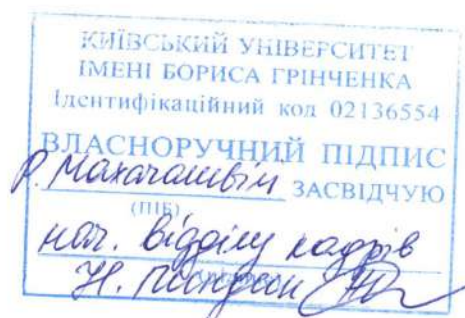 КИЇВСЬКИЙ УНІВЕРСИТЕТ
ІМЕНІ БОРИСА ГРІНЧЕНКА
Ідентифікаційний код 02136554
ВЛАСНОРУЧНИЙ ПІДПИС
Р. Махачашвілі ЗАСВІДЧУЮ
(ПІБ)
нач. відділу кадрів
Н.